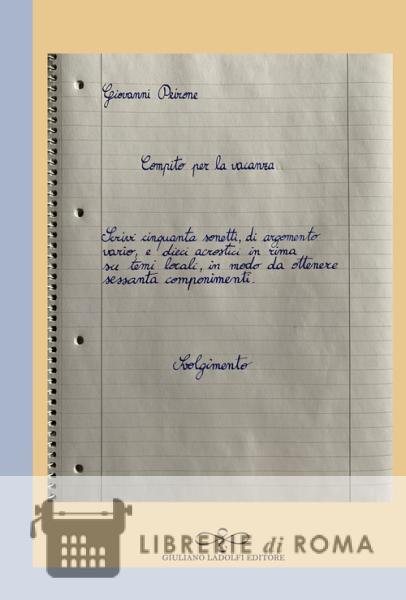 Giovanni Peirone
Compito per la vacanza
Scrivi cinquanta sonetti, di argomento
vario, e dieci acrostici in rima
su temi locali, in modo da ottenere
sessanta componimenti.
Svolgimento
LIBRERIE di ROMA
GIULIANO LADOLFI EDITORE